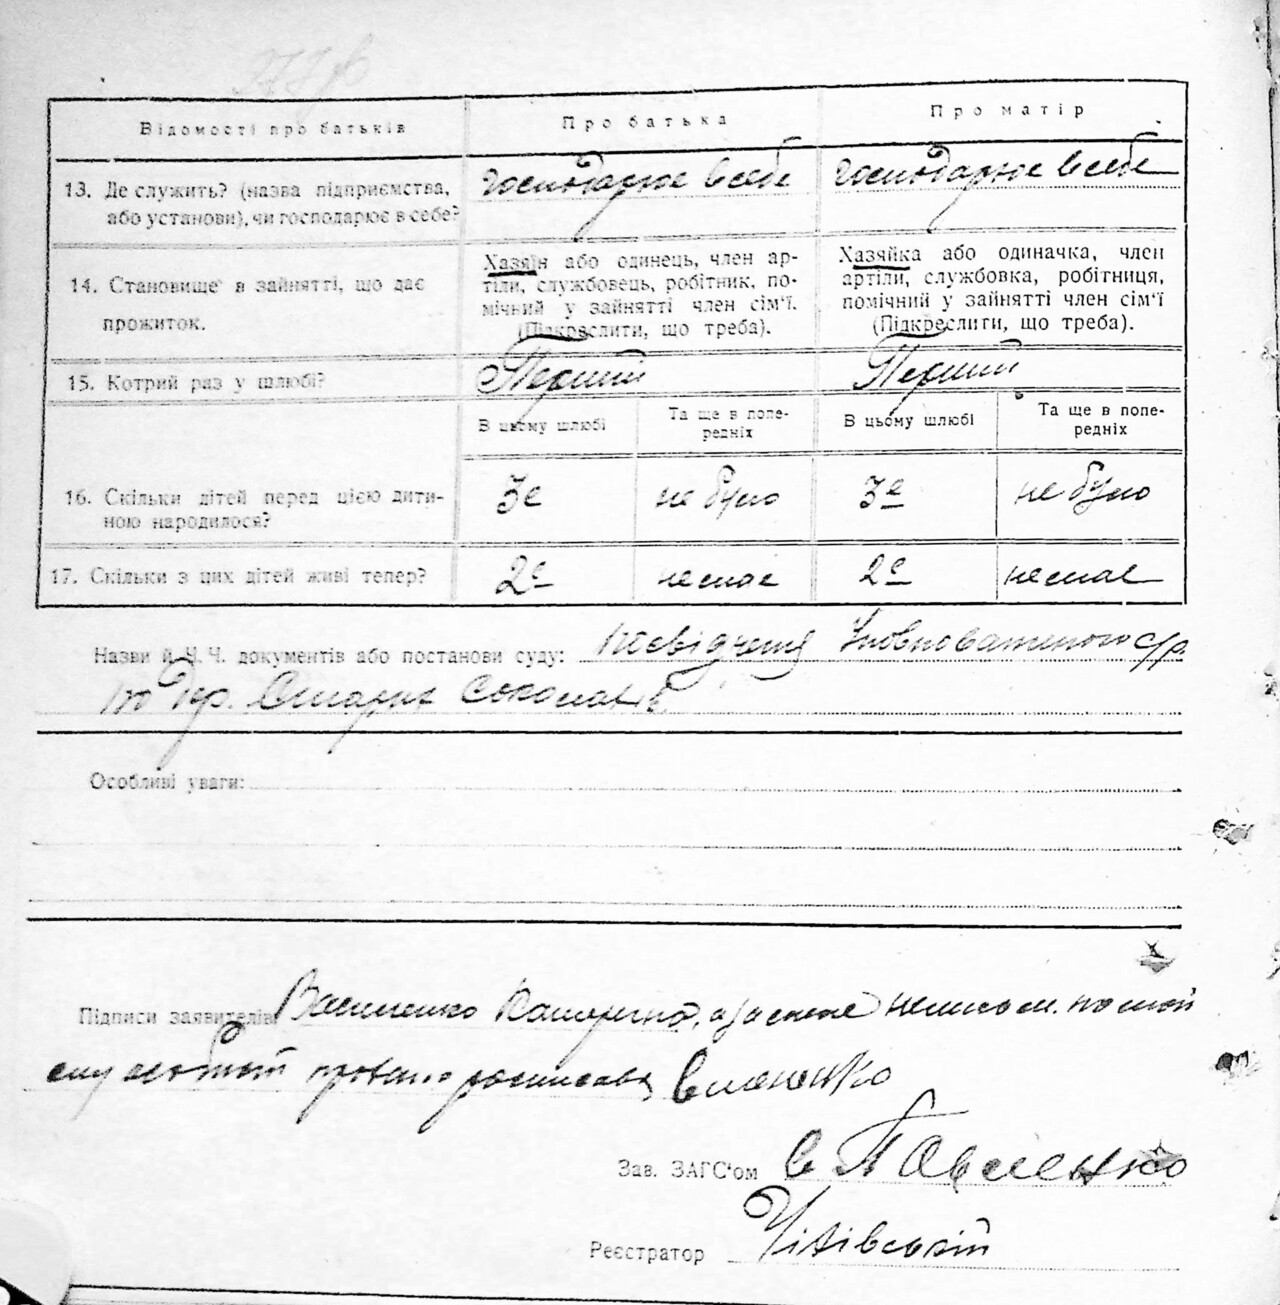 Відомості про батьків
Про батька
Про матір
13. Де служить? (назва підприємства,
або установи), чи господарює в себе?
господарює в себе
господарює в себе
14. Становище в зайнятті, що дає
прожиток.
Хазяїн або одинець, член ар-
тіли, службовець, робітник, по-
мічний у зайнятті член сім'ї.
(Підкреслити, що треба).
Хазяйка або одиначка, член
артіли, службовка, робітниця,
помічний у зайнятті член сім'ї
(Підкреслити, що треба).
15. Котрий раз у шлюбі?
Перший
Перший
В цьому шлюбі
Та ще в попе-
редніх
В цьому шлюбі
Та ще в попе-
редніх
16. Скільки дітей перед цією дити-
ною народилося?
3є
не було
3є
не було
17. Скільки з цих дітей живі тепер?
2є
немає
2є
немає
Назви й Ч.Ч. документів або постанови суду: Посвідченя Уповноваженого с/р.
по
Особливі уваги:
Підписи заявителів
Зав. ЗАГС'ом Павленко
Реєстратор